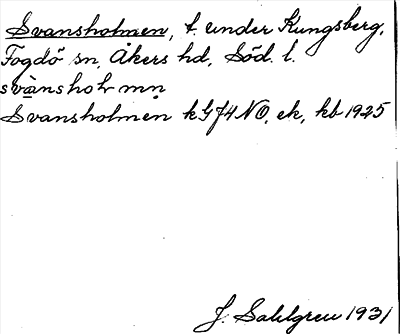 Svansholmen, t. under Kungsberg,
Fogdö sn, Åkers hd, Söd. l.
Svansholmen k GJ4 NO, ek, kb 1925
J. Sahlgren 1931